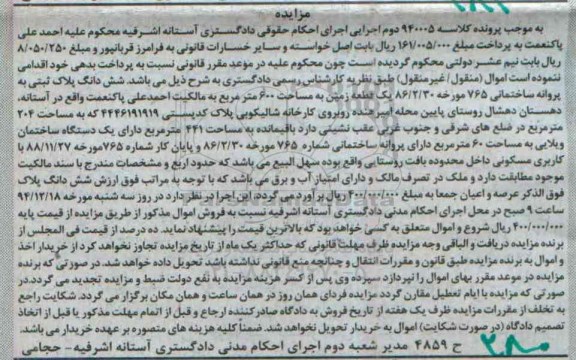 مزایده
به موجب پرونده کلاسه ۹۴۰۰۰۵ دوم اجرایی اجرای احکام حقوقی دادگستری آستانه اشرفیه محکوم علیه احمد علی
پاکنعمت به پرداخت مبلغ ۱۶۱/۰۰۵/۰۰۰ ریال بابت اصل خواسته و سایر خسارات قانونی به فرامرز قربانپور و مبلغ ۸/۰۵۰/۲۵۰
ریال بابت نیم عشر دولتی محکوم گردیده است چون محکوم علیه در موعد مقرر قانونی نسبت به پرداخت بدهی خود اقدامی
ننموده است اموال (منقول/غیرمنقول) طبق نظریه کارشناس رسمی دادگستری به شرح ذیل می باشد. شش دانگ پلاک ثبتی به
پروانه ساختمانی ۷۶۵ مورخه ۸۶/۲/۳۰ یک قطعه زمین به مساحت ۶۰۰ متر مربع به مالکیت احمدعلی پاکنعمت واقع در آستانه،
دهستان دهشال روستای پایین محله امیرکنده روبروی کارخانه شالیکوبی پلاک کدپستی ۴۴۴۶۱۹۱۹۱۹ که به مساحت ۲۰۴
مترمربع در ضلع های شرقی و جنوب غربی عقب نشینی دارد باقیمانده به مساحت ۴۴۱ مترمربع دارای یک دستگاه ساختمان
ویلایی به مساحت ۶۰ مترمربع دارای پروانه ساختمانی شماره ۷۶۵ مورخه ۸۶/۲/۳۰ و پایان کار شماره ۷۶۵ مورخه ۸۸/۱۱/۲۷ با
کاربری مسکونی داخل محدوده بافت روستایی واقع بوده سهل البیع می باشد که حدود اربع و مشخصات مندرج با سند مالکیت
موجود مطابقت دارد و ملک در تصرف مالک و دارای امتیاز آب و برق می باشد که با توجه به مراتب فوق ارزش شش دانگ پلاک
فوق الذکر عرصه و اعیان جمعا به مبلغ ۴۰۰/۰۰۰/۰۰۰ ریال برآورد می گردد. این اجرا در نظر دارد در روز سه شنبه مورخه ۹۴/۱۲/۱۸
ساعت ۹ صبح در محل اجرای احکام مدنی دادگستری آستانه اشرفیه نسبت به فروش اموال مذکور از طریق مزایده از قیمت پایه
۴۰۰/۰۰۰/۰۰۰ ریال شروع و اموال متعلق به کسی خواهد بود که بالاترین قیمت را پیشنهاد نماید. ده درصد از قیمت فی المجلس از
برنده مزایده دریافت و الباقی وجه مزایده ظرف مهلت قانونی که حداکثر یک ماه از تاریخ مزایده تجاوز نخواهد کرد از خریدار اخذ
و اموال به برنده مزایده طبق قانون و مقررات انتقال و چنانچه منع قانونی نداشته باشد تحویل داده خواهد شد. در صورتی که برنده
مزایده در موعد مقرر بهای اموال را نپردازد سپرده وی پس از کسر هزینه مزایده به نفع دولت ضبط و مزایده تجدید می گردد. در
صورتی که مزایده با ایام تعطیل مقارن گردد مزایده فردای همان روز در همان ساعت و همان مکان برگزار می گردد. شکایت راجع
به تخلف از مقررات مزایده ظرف یک هفته از تاریخ فروش به دادگاه صادرکننده ارجاع و قبل از اتمام مهلت مذکور یا قبل از اتخاذ
تصمیم دادگاه (در صورت شکایت) اموال به خریدار تحویل نخواهد شد. ضمناً کلیه هزینه های متصوره بر عهده خریدار می باشد.
ح ۴۸۵۹ مدیر شعبه دوم اجرای احکام مدنی دادگستری آستانه اشرفیه - حجامی